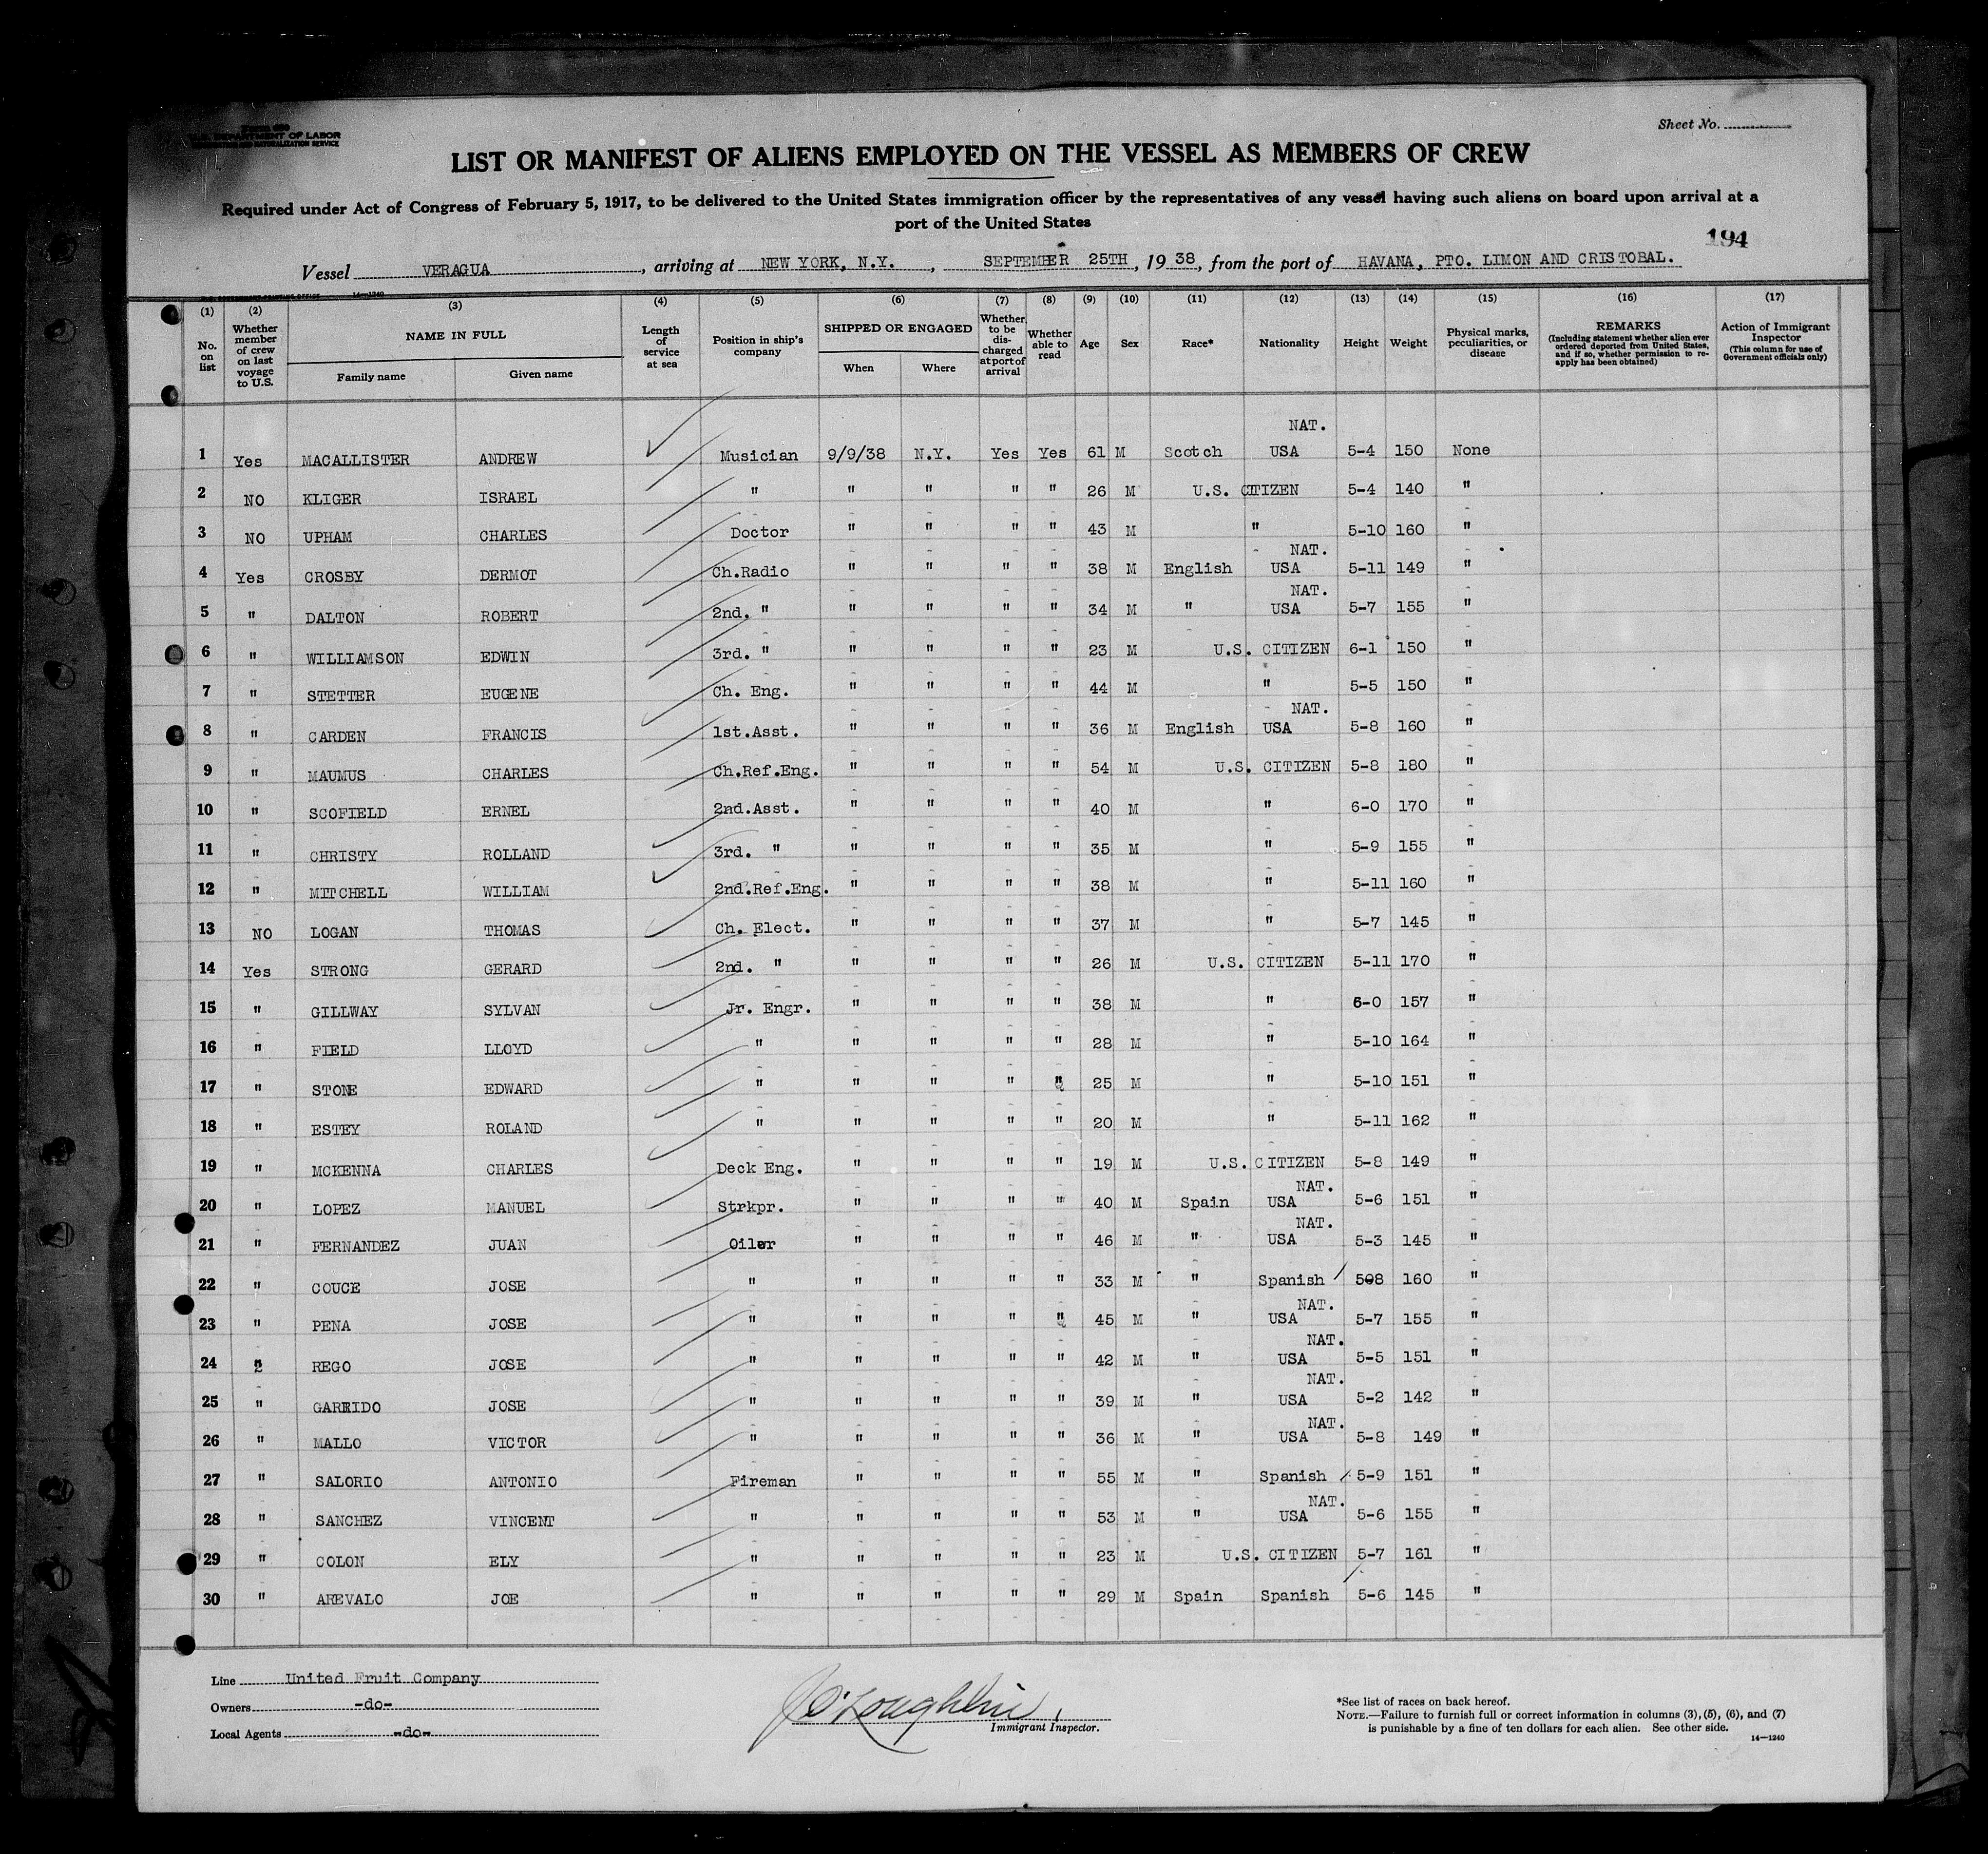 U.S. DEPARTMENT OF LABOR
IMMIGRATION AND NATURALIZATION SERVICE
Sheet No.
LIST OR MANIFEST OF ALIENS EMPLOYED ON THE VESSEL AS MEMBERS OF CREW
Required under Act of Congress of February 5, 1917, to be delivered to the United States immigration officer by the representatives of any vessel having such aliens on board upon arrival at a
port of the United States
194
Vessel VERAGUA, arriving at NEW YORK, N.Y., SEPTEMBER 25TH, 1938, from the port of HAVANA, PTO. LIMON AND CRISTOBAL.
14—1240
(1) (2) (3) (4) (5) (6) (7) (8) (9) (10) (11) (12) (13) (14) (15) (16) (17)
No. on list | Whether member of crew on last voyage to U.S. | NAME IN FULL Family name Given name | Length of service at sea | Position in ship's company | SHIPPED OR ENGAGED When Where | Whether to be discharged at port of arrival | Whether able to read | Age | Sex | Race* | Nationality | Height | Weight | Physical marks, peculiarities, or disease | REMARKS (Including statement whether alien ever ordered deported from United States, and if so, whether permission to reapply has been obtained) | Action of Immigrant Inspector (This column for use of Government officials only)
1 Yes MACALLISTER ANDREW Musician 9/9/38 N.Y. Yes Yes 61 M Scotch NAT. USA 5-4 150 None
2 NO KLIGER ISRAEL " " " " " 26 M U.S. CITIZEN 5-4 140 "
3 NO UPHAM CHARLES Doctor " " " " 43 M " 5-10 160 "
4 Yes CROSBY DERMOT Ch.Radio " " " " 38 M English NAT. USA 5-11 149 "
5 " DALTON ROBERT 2nd. " " " " " 34 M " NAT. USA 5-7 155 "
6 " WILLIAMSON EDWIN 3rd. " " " " " 23 M U.S. CITIZEN 6-1 150 "
7 " STETTER EUGENE Ch. Eng. " " " " 44 M " 5-5 150 "
8 " CARDEN FRANCIS 1st.Asst. " " " " 36 M English NAT. USA 5-8 160 "
9 " MAUMUS CHARLES Ch.Ref.Eng. " " " " 54 M U.S. CITIZEN 5-8 180 "
10 " SCOFIELD ERNEL 2nd.Asst. " " " " 40 M " 6-0 170 "
11 " CHRISTY ROLLAND 3rd. " " " " " 35 M " 5-9 155 "
12 " MITCHELL WILLIAM 2nd.Ref.Eng. " " " " 38 M " 5-11 160 "
13 NO LOGAN THOMAS Ch. Elect. " " " " 37 M " 5-7 145 "
14 Yes STRONG GERARD 2nd. " " " " " 26 M U.S. CITIZEN 5-11 170 "
15 " GILLWAY SYLVAN Jr. Engr. " " " " 38 M " 6-0 157 "
16 " FIELD LLOYD " " " " " 28 M " 5-10 164 "
17 " STONE EDWARD " " " " " 25 M " 5-10 151 "
18 " ESTEY ROLAND " " " " " 20 M " 5-11 162 "
19 " MCKENNA CHARLES Deck Eng. " " " " 19 M U.S. CITIZEN 5-8 149 "
20 " LOPEZ MANUEL Strkpr. " " " " 40 M Spain NAT. USA 5-6 151 "
21 " FERNANDEZ JUAN Oiler " " " " 46 M " NAT. USA 5-3 145 "
22 " COUCE JOSE " " " " " 33 M " Spanish 5-8 160 "
23 " PENA JOSE " " " " " 45 M " NAT. USA 5-7 155 "
24 " REGO JOSE " " " " " 42 M " NAT. USA 5-5 151 "
25 " GARRIDO JOSE " " " " " 39 M " NAT. USA 5-2 142 "
26 " MALLO VICTOR " " " " " 36 M " NAT. USA 5-8 149 "
27 " SALORIO ANTONIO Fireman " " " " 55 M " Spanish 5-9 151 "
28 " SANCHEZ VINCENT " " " " " 53 M " NAT. USA 5-6 155 "
29 " COLON ELY " " " " " 23 M U.S. CITIZEN 5-7 161 "
30 " AREVALO JOE " " " " " 29 M Spain Spanish 5-6 145 "
Line United Fruit Company
Owners -do-
Local Agents -do-
J O'Loughlin,
Immigrant Inspector.
*See list of races on back hereof.
NOTE.—Failure to furnish full or correct information in columns (3), (5), (6), and (7)
is punishable by a fine of ten dollars for each alien. See other side.
14—1240